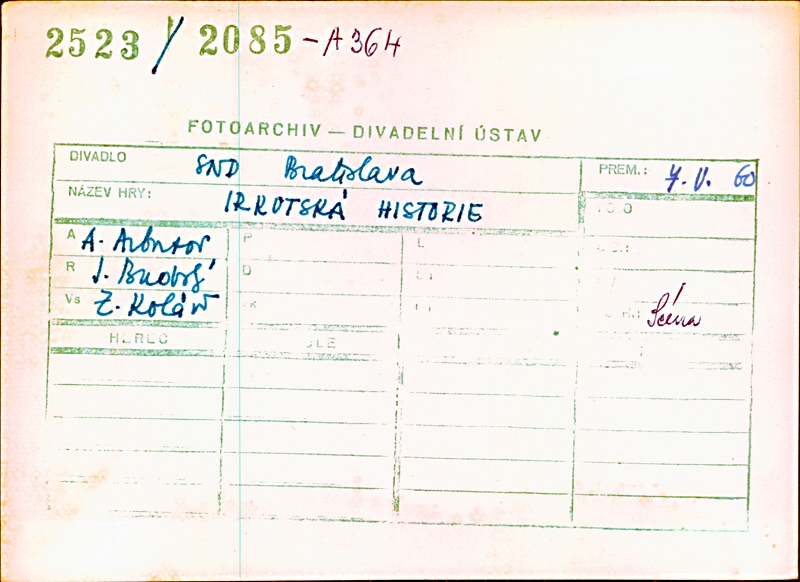 2523/2085-A364
FOTOARCHIV — DIVADELNÍ ÚSTAV
DIVADLO SND Bratislava PREM.: 7. V. 60
NÁZEV HRY: IRKUTSKÁ HISTORIE
A A. Arbuzov P L
R J. Budský O
Vs Z. Kolář
Scéna
HEREC